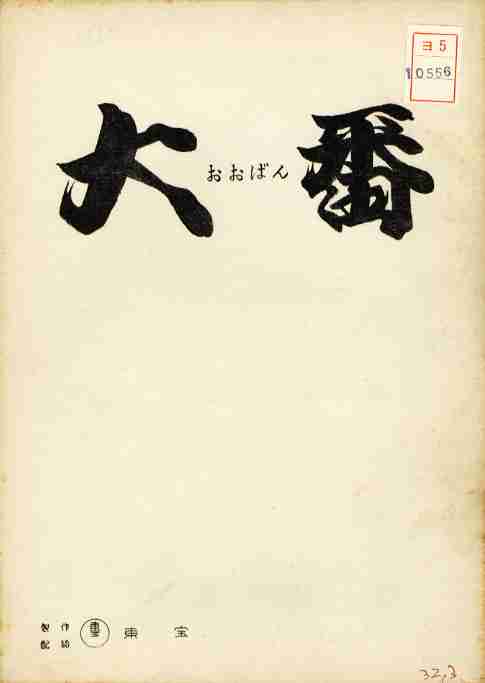 ヨ5
10556
大番
おおばん
製作
配給
東宝
32,2